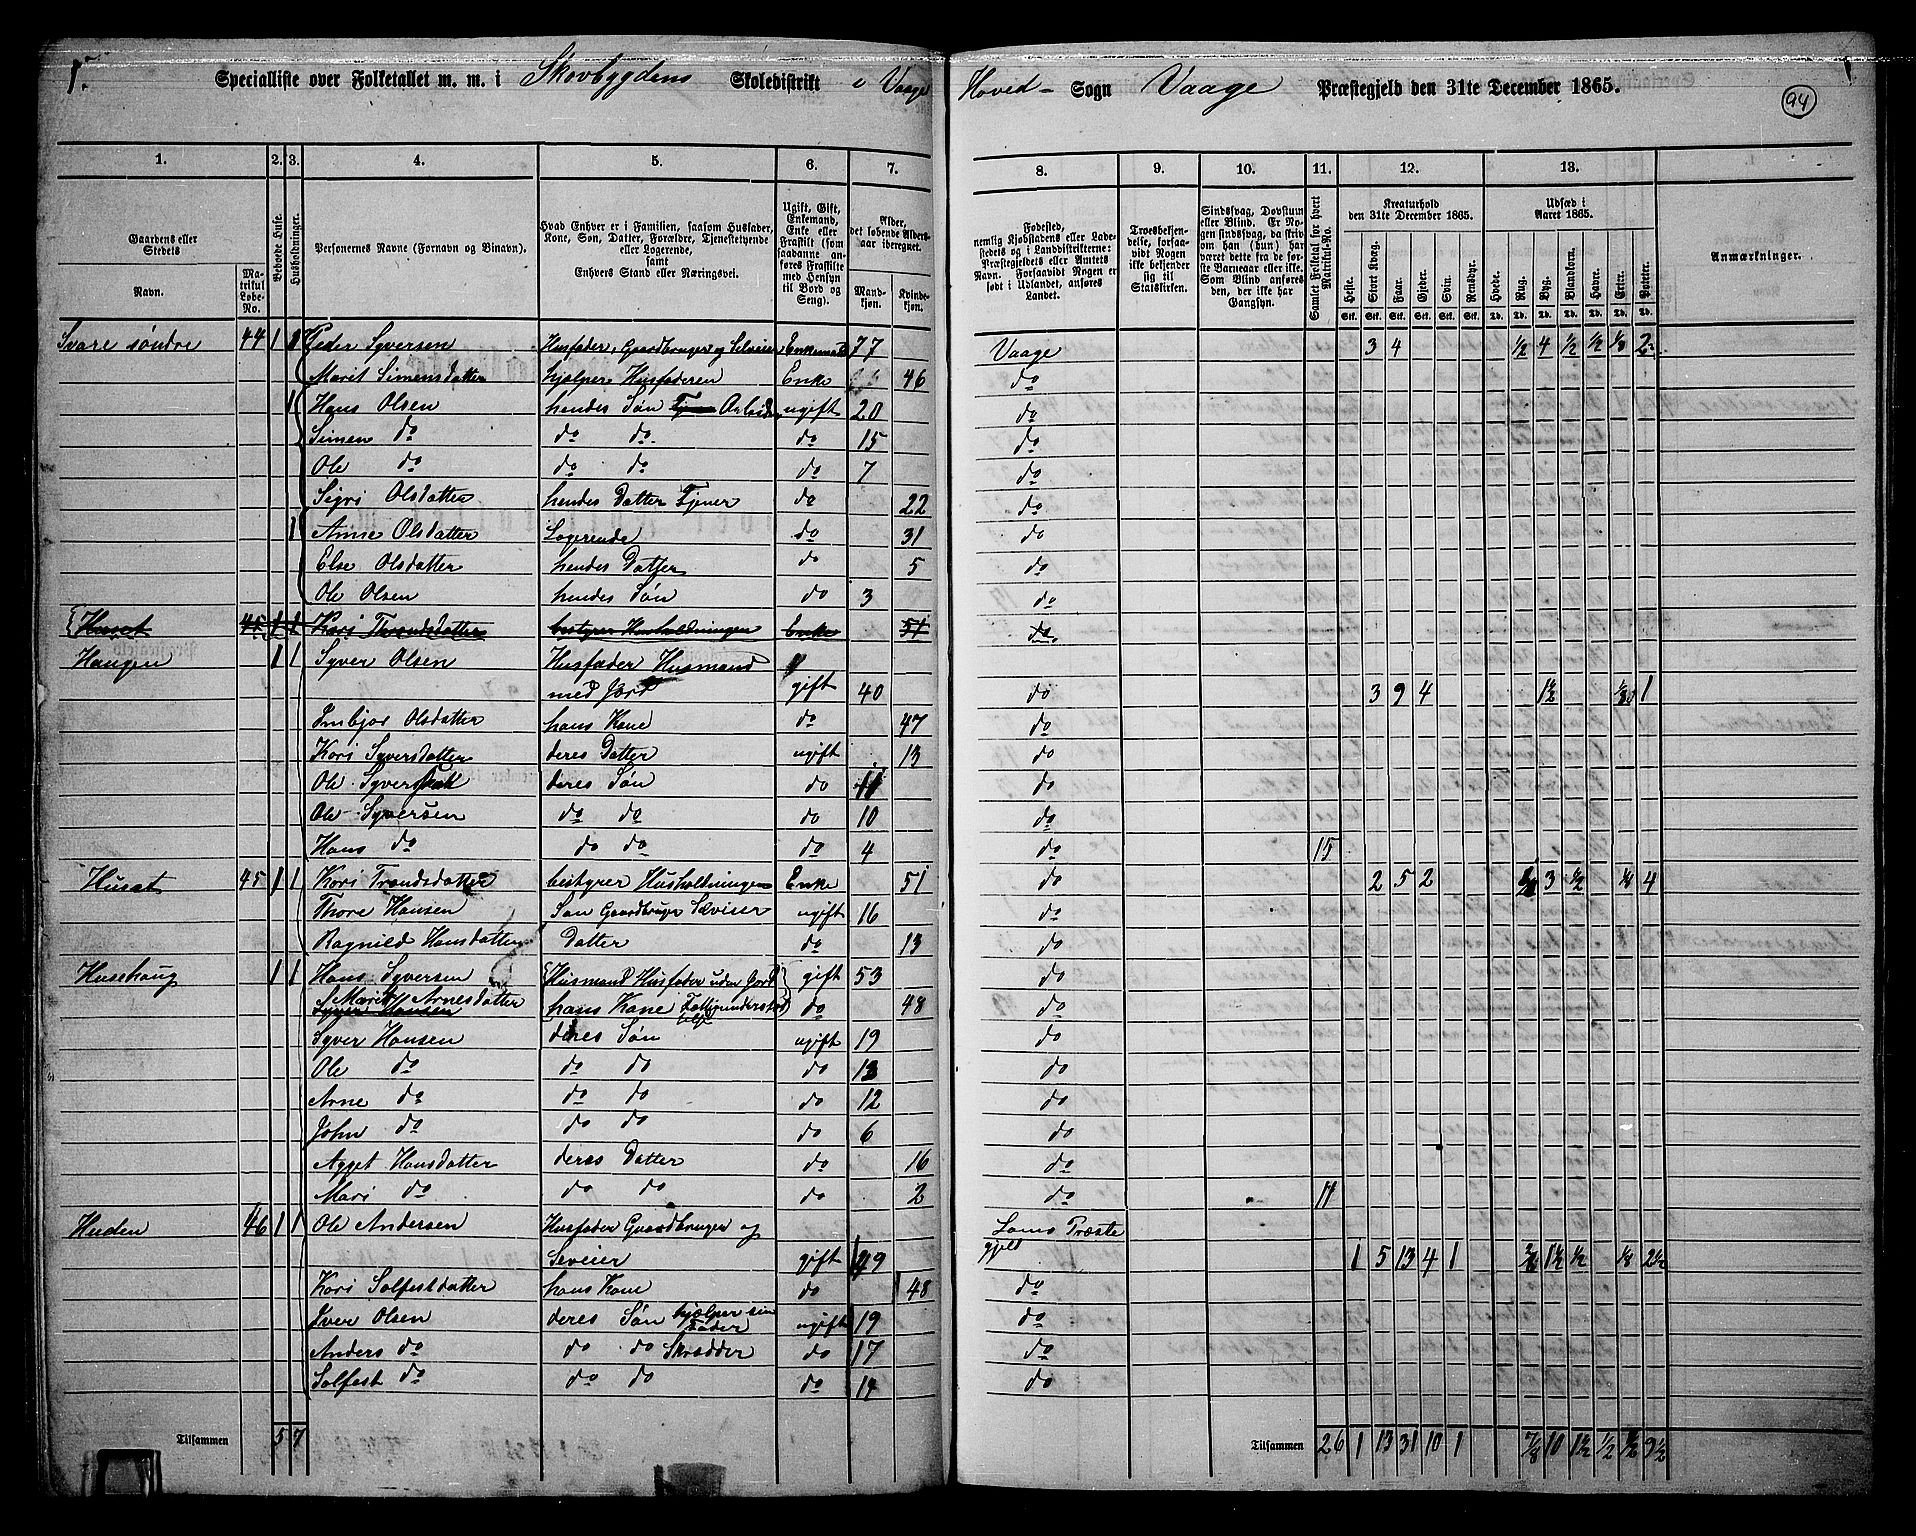 1. Specialliste over Folketallet m. m. i Skovbygdens Skoledistrikt i Vaage Hoved- Sogn Vaage Præstegjeld den 31te December 1865. 94
1. 2. 3. 4. 5. 6. 7. 8. 9. 10. 11. 12. 13.
Gaardens eller Stedets Navn. Matrikul Løbe-No. Beboede Huse. Husholdninger. Personernes Navne (Fornavn og Binavn). Hvad Enhver er i Familien, saasom Husfader, Kone, Søn, Datter, Forældre, Tjenestetyende eller Logerende, samt Enhvers Stand eller Næringsvei. Ugift, Gift, Enkemand, Enke eller Fraskilt (som saadanne anføres Fraskilte med Hensyn til Bord og Seng). Alder, det løbende Aldersaar iberegnet. Mandkjøn. Kvindekjøn.
Fødested, nemlig Kjøbstadens eller Ladestedets og i Landdistrikterne: Præstegjeldets eller Amtets Navn. Forsaavidt Nogen er født i Udlandet, anføres Landet. Troesbekjendelse, forsaavidt Nogen ikke bekjender sig til Statskirken. Sindssvag, Døvstum eller Blind. Er Nogen sindssvag, om han (hun) har været dette fra de første Barneaar eller ikke. Som Blind anføres den, der ikke har Gangsyn. Samlet Folketal for hvert Matrikul-No. Kreaturhold den 31te December 1865. Heste. Stort Kvæg. Faar. Gjeder. Svin. Rensdyr. Udsæd i Aaret 1865. Hvede. Rug. Byg. Blandkorn. Havre. Erter. Poteter. Anmærkninger.
Svare søndre 44 1 Peder Syversen Husfader, Gaardbruger og Selveier Enkemand 77 Vaage 3 4 ½ 4 ½ ½ ⅛ 2
Marit Simensdatter hjælper Husfaderen Enke 46 do
1 Hans Olsen hendes Søn Arbeider ugift 20 do
Simen do do do do 15 do
Ole do do do do 7 do
Sigri Olsdatter hendes Datter Tjener do 22 do
1 Anne Olsdatter Logerende do 31 do
Else Olsdatter hendes Datter do 5 do
Ole Olsen hendes Søn do 3 do
Husat 45 1 1 Kari Trondsdatter bestyrer Husholdningen Enke 51 do
Haugen 1 1 Syver Olsen Husfader Husmand
med Jord gift 40 do 3 9 4 1½ 1
Imbjor Olsdatter hans Kone do 47 do
Kari Syversdatter deres Datter ugift 13 do
Ole Syversen deres Søn do 11 do
Ole Syversen do do do 10 do
Hans do do do do 4 do 15
Husat 45 1 1 Kari Trondsdatter bestyrer Husholdningen Enke 51 do 2 5 2 3 ½ ¼ 4
Thore Hansen Søn Gaardbruger Selveier ugift 16 do
Ragnild Hansdatter Datter do 13 do
Husehaug 1 1 Hans Syversen Husmand Husfader uden Jord gift 53 do
Marit Arnesdatter hans Kone Fattigunderstøttelse do 48 do
Syver Hansen
Syver Hansen deres Søn ugift 19 do
Ole do do do do 13 do
Arne do do do do 12 do
John do do do do 6 do
Agget Hansdatter deres Datter do 16 do
Mari do do do do 2 do 11
Huden 46 1 1 Ole Andersen Husfader Gaardbruger og Loms Præste
Seveier gift 49 gjeld 1 5 13 4 1 1½ ½ ⅛ 2½
Kari Solfestdatter hans Kone do 48 do
Iver Olsen deres Søn hjælper sin Fader ugift 19 do
Anders do do do Skrædder do 17 do
Solfest do do do do 14 do
Tilsammen 5 7 Tilsammen 26 1 13 31 10 1 ⅞ 10 1½ ½ 9½